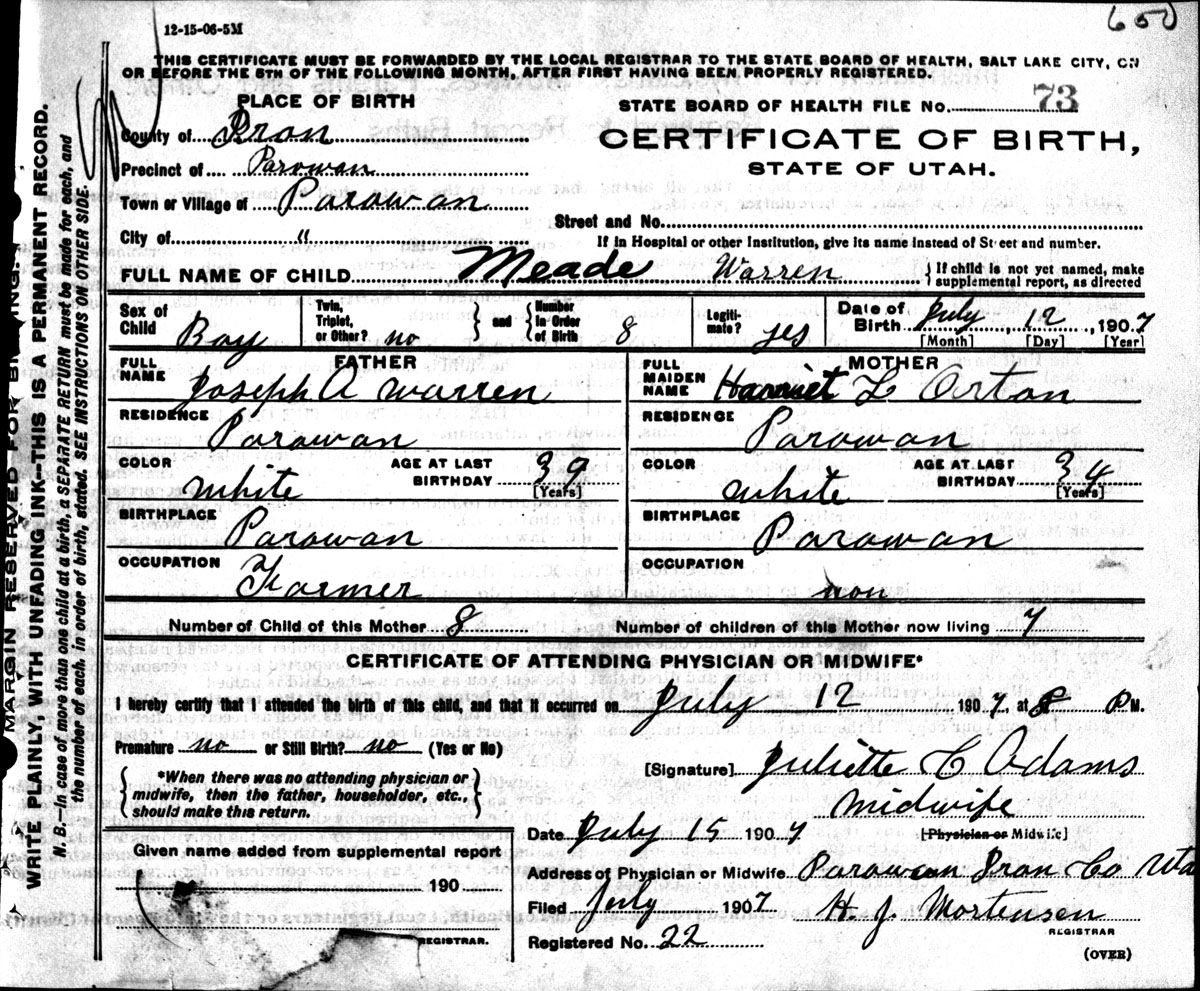 650
12-15-06-5M
THIS CERTIFICATE MUST BE FORWARDED BY THE LOCAL REGISTRAR TO THE STATE BOARD OF HEALTH, SALT LAKE CITY, ON
OR BEFORE THE 5TH OF THE FOLLOWING MONTH, AFTER FIRST HAVING BEEN PROPERLY REGISTERED.
PLACE OF BIRTH
STATE BOARD OF HEALTH FILE No. 73
County of Iron
CERTIFICATE OF BIRTH,
Precinct of Parowan
STATE OF UTAH.
Town or Village of Parowan
Street and No.
City of "
If in Hospital or other Institution, give its name instead of Street and number.
FULL NAME OF CHILD Meade Warren
If child is not yet named, make
supplemental report, as directed
Sex of Child Boy
Twin, Triplet, or Other? no
and Number in Order of Birth 8
Legitimate? yes
Date of Birth July 12, 1907
[Month] [Day] [Year]
FATHER
FULL NAME Joseph A Warren
RESIDENCE Parowan
COLOR white
AGE AT LAST BIRTHDAY 39
[Years]
BIRTHPLACE Parowan
OCCUPATION Farmer
MOTHER
FULL MAIDEN NAME Harriet L Orton
RESIDENCE Parowan
COLOR white
AGE AT LAST BIRTHDAY 34
[Years]
BIRTHPLACE Parowan
OCCUPATION non
Number of Child of this Mother 8 Number of children of this Mother now living 7
CERTIFICATE OF ATTENDING PHYSICIAN OR MIDWIFE*
I hereby certify that I attended the birth of this child, and that it occurred on July 12 1907, at 8 P M.
Premature no or Still Birth? no (Yes or No)
*When there was no attending physician or
midwife, then the father, householder, etc.,
should make this return.
[Signature] Juliette C Adams
midwife
Date July 15 1907 [Physician or Midwife]
Given name added from supplemental report
190
REGISTRAR.
Address of Physician or Midwife Parowan Iron Co Uta
Filed July 1907 H. J. Mortensen
REGISTRAR
Registered No. 22
(OVER)
MARGIN RESERVED FOR BINDING.
WRITE PLAINLY, WITH UNFADING INK—THIS IS A PERMANENT RECORD.
N. B.—In case of more than one child at a birth, a SEPARATE RETURN must be made for each, and
the number of each, in order of birth, stated. SEE INSTRUCTIONS ON OTHER SIDE.